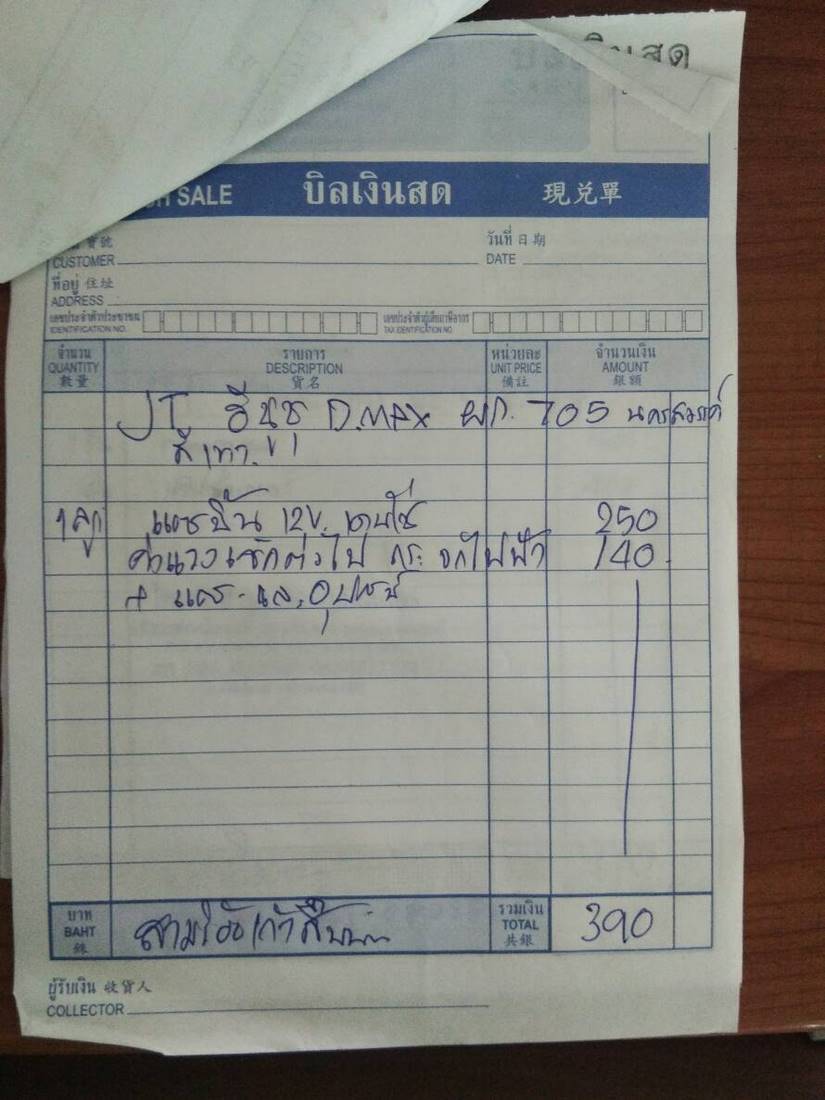 เงินสด
SALE บิลเงินสด 現兌單
寶號 วันที่ 日期
CUSTOMER DATE
ที่อยู่ 住址
ADDRESS
เลขประจำตัวประชาชน เลขประจำตัวผู้เสียภาษีอากร
IDENTIFICATION NO. TAX IDENTIFICATION NO.
จำนวน รายการ หน่วยละ จำนวนเงิน
QUANTITY DESCRIPTION UNIT PRICE AMOUNT
數量 貨名 備註 銀額
อีซูซุ D.MAX ผก. 705 นครสวรรค์
สีเทา
1 ลูก 12V. 250
กระจกไฟฟ้า 140
+
บาท สามร้อยเก้าสิบบาท รวมเงิน 390
BAHT TOTAL
銖 共銀
ผู้รับเงิน 收貨人
COLLECTOR